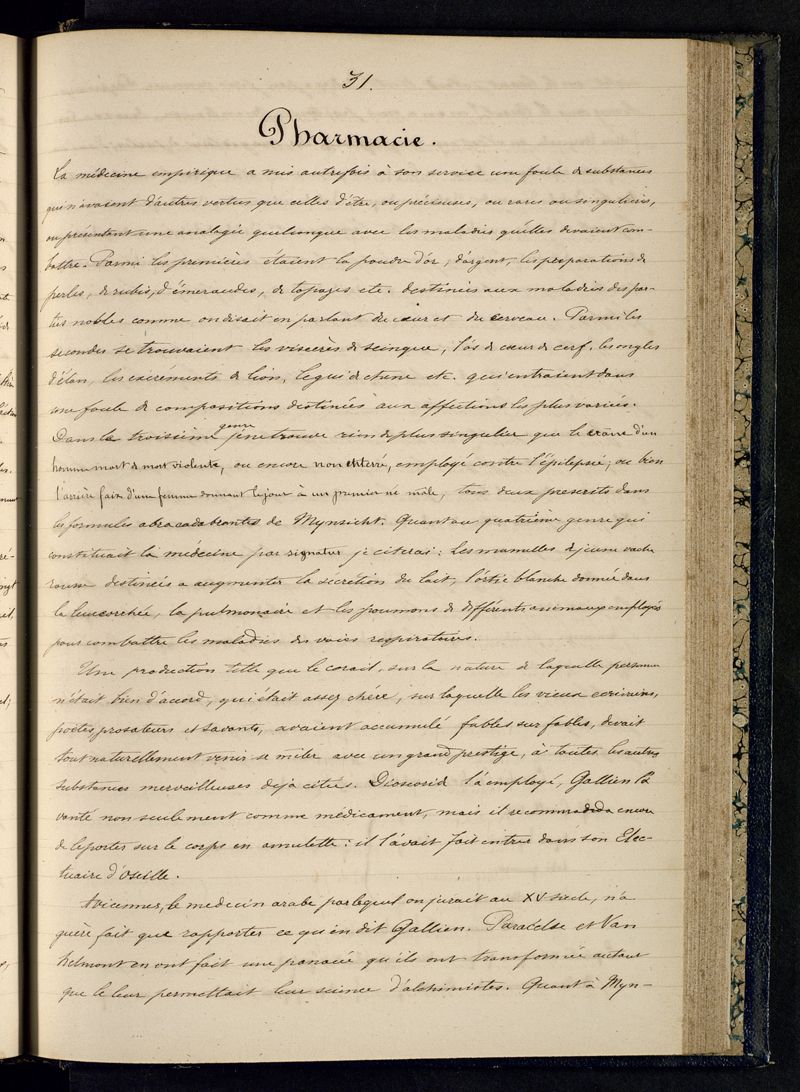 31.
Pharmacie.
La médecine empirique a mis autrefois à son service une foule de substances
qui n'avaient d'autres vertus que celles d'être, ou précieuses, ou rares ou singulières,
ou présentant une analogie quelconque avec les maladies qu'elles devaient com-
battre. Parmi les premières étaient la poudre d'or, d'argent, les préparations de
perles, de rubis, d'émeraudes, de topazes etc. destinées aux maladies des par-
ties nobles comme on disait en parlant du cœur et du cerveau. Parmi les
secondes se trouvaient les viscères de scinque, l'os de cœur de cerf, les ongles
d'élan, les excréments de lion, le gui de chene etc. qui entraient dans
une foule de compositions destinées aux affections les plus variées.
Dans le troisième genre je ne trouve rien de plus singulier que le crâne d'un
homme mort de mort violente, ou encore non enterré, employé contre l'épilepsie; ou bien
l'arrière faix d'une femme donnant le jour à un premier né mâle, tous deux prescrits dans
les formules abracadabrantes de Mynsicht. Quant au quatrième genre qui
constituait la médecine par signatur je citerai: Les mamelles de jeune vache
rousse destinées a augmenter la secrétion du lait, l'ortie blanche donnée dans
la leucorrhée, la pulmonaire et les poumons de différents animaux employés
pour combattre les maladies des voies respiratoires.
Une production telle que le corail, sur la nature de laquelle personne
n'était bien d'accord, qui était assez chére, sur laquelle les vieux ecrivains,
poëtes, prosateurs et savants, avaient accumulé fables sur fables, devait
tout naturellement venir se mêler avec un grand prestige, à toutes les autres
substances merveilleuses deja citées. Dioscorid l'a employé, Gallien l'a
vanté non seulement comme médicament, mais il recommanda encore
de le porter sur le corps en amulette: il l'avait fait entrer dans son Elec-
tuaire d'oseille.
Avicennes, le medecin arabe par lequel on jurait au XV siecle, n'a
guère fait que rapporter ce qu'en dit Gallien. Paracelse et Van
helmont en ont fait une panacée qu'ils ont transformée autant
que le leur permettait leur science d'alchimistes. Quant à Myn-